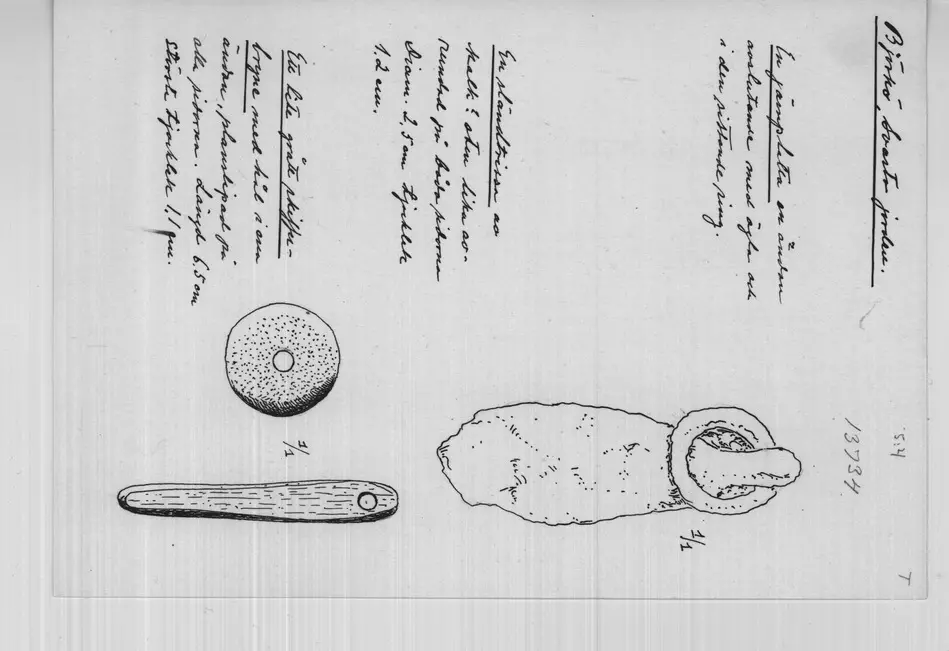 Björkö, Svarta jorden.
SHM
13734
T
En jämpletten en ändan
avslutande med ögla och
i den sittande ring.
1/1
En sländtrissa av
skalk? sten lika av-
rundad på båda sidorna
Diam. 2,5 cm tjocklek
1.2 cm.
Ett lite grått skiffer-
bryne med hål i ena
ändan, planslipad på
alla sidorna. Längd 6.5 cm
största tjocklek 1,1 cm.
1/1